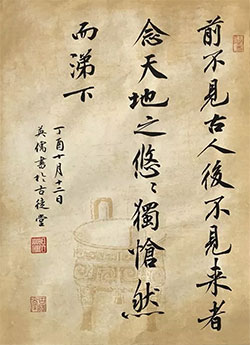 前不見古人後不見来者
念天地之悠〻獨愴然
而涕下
丁酉十月十二日
英儒書於古徒堂